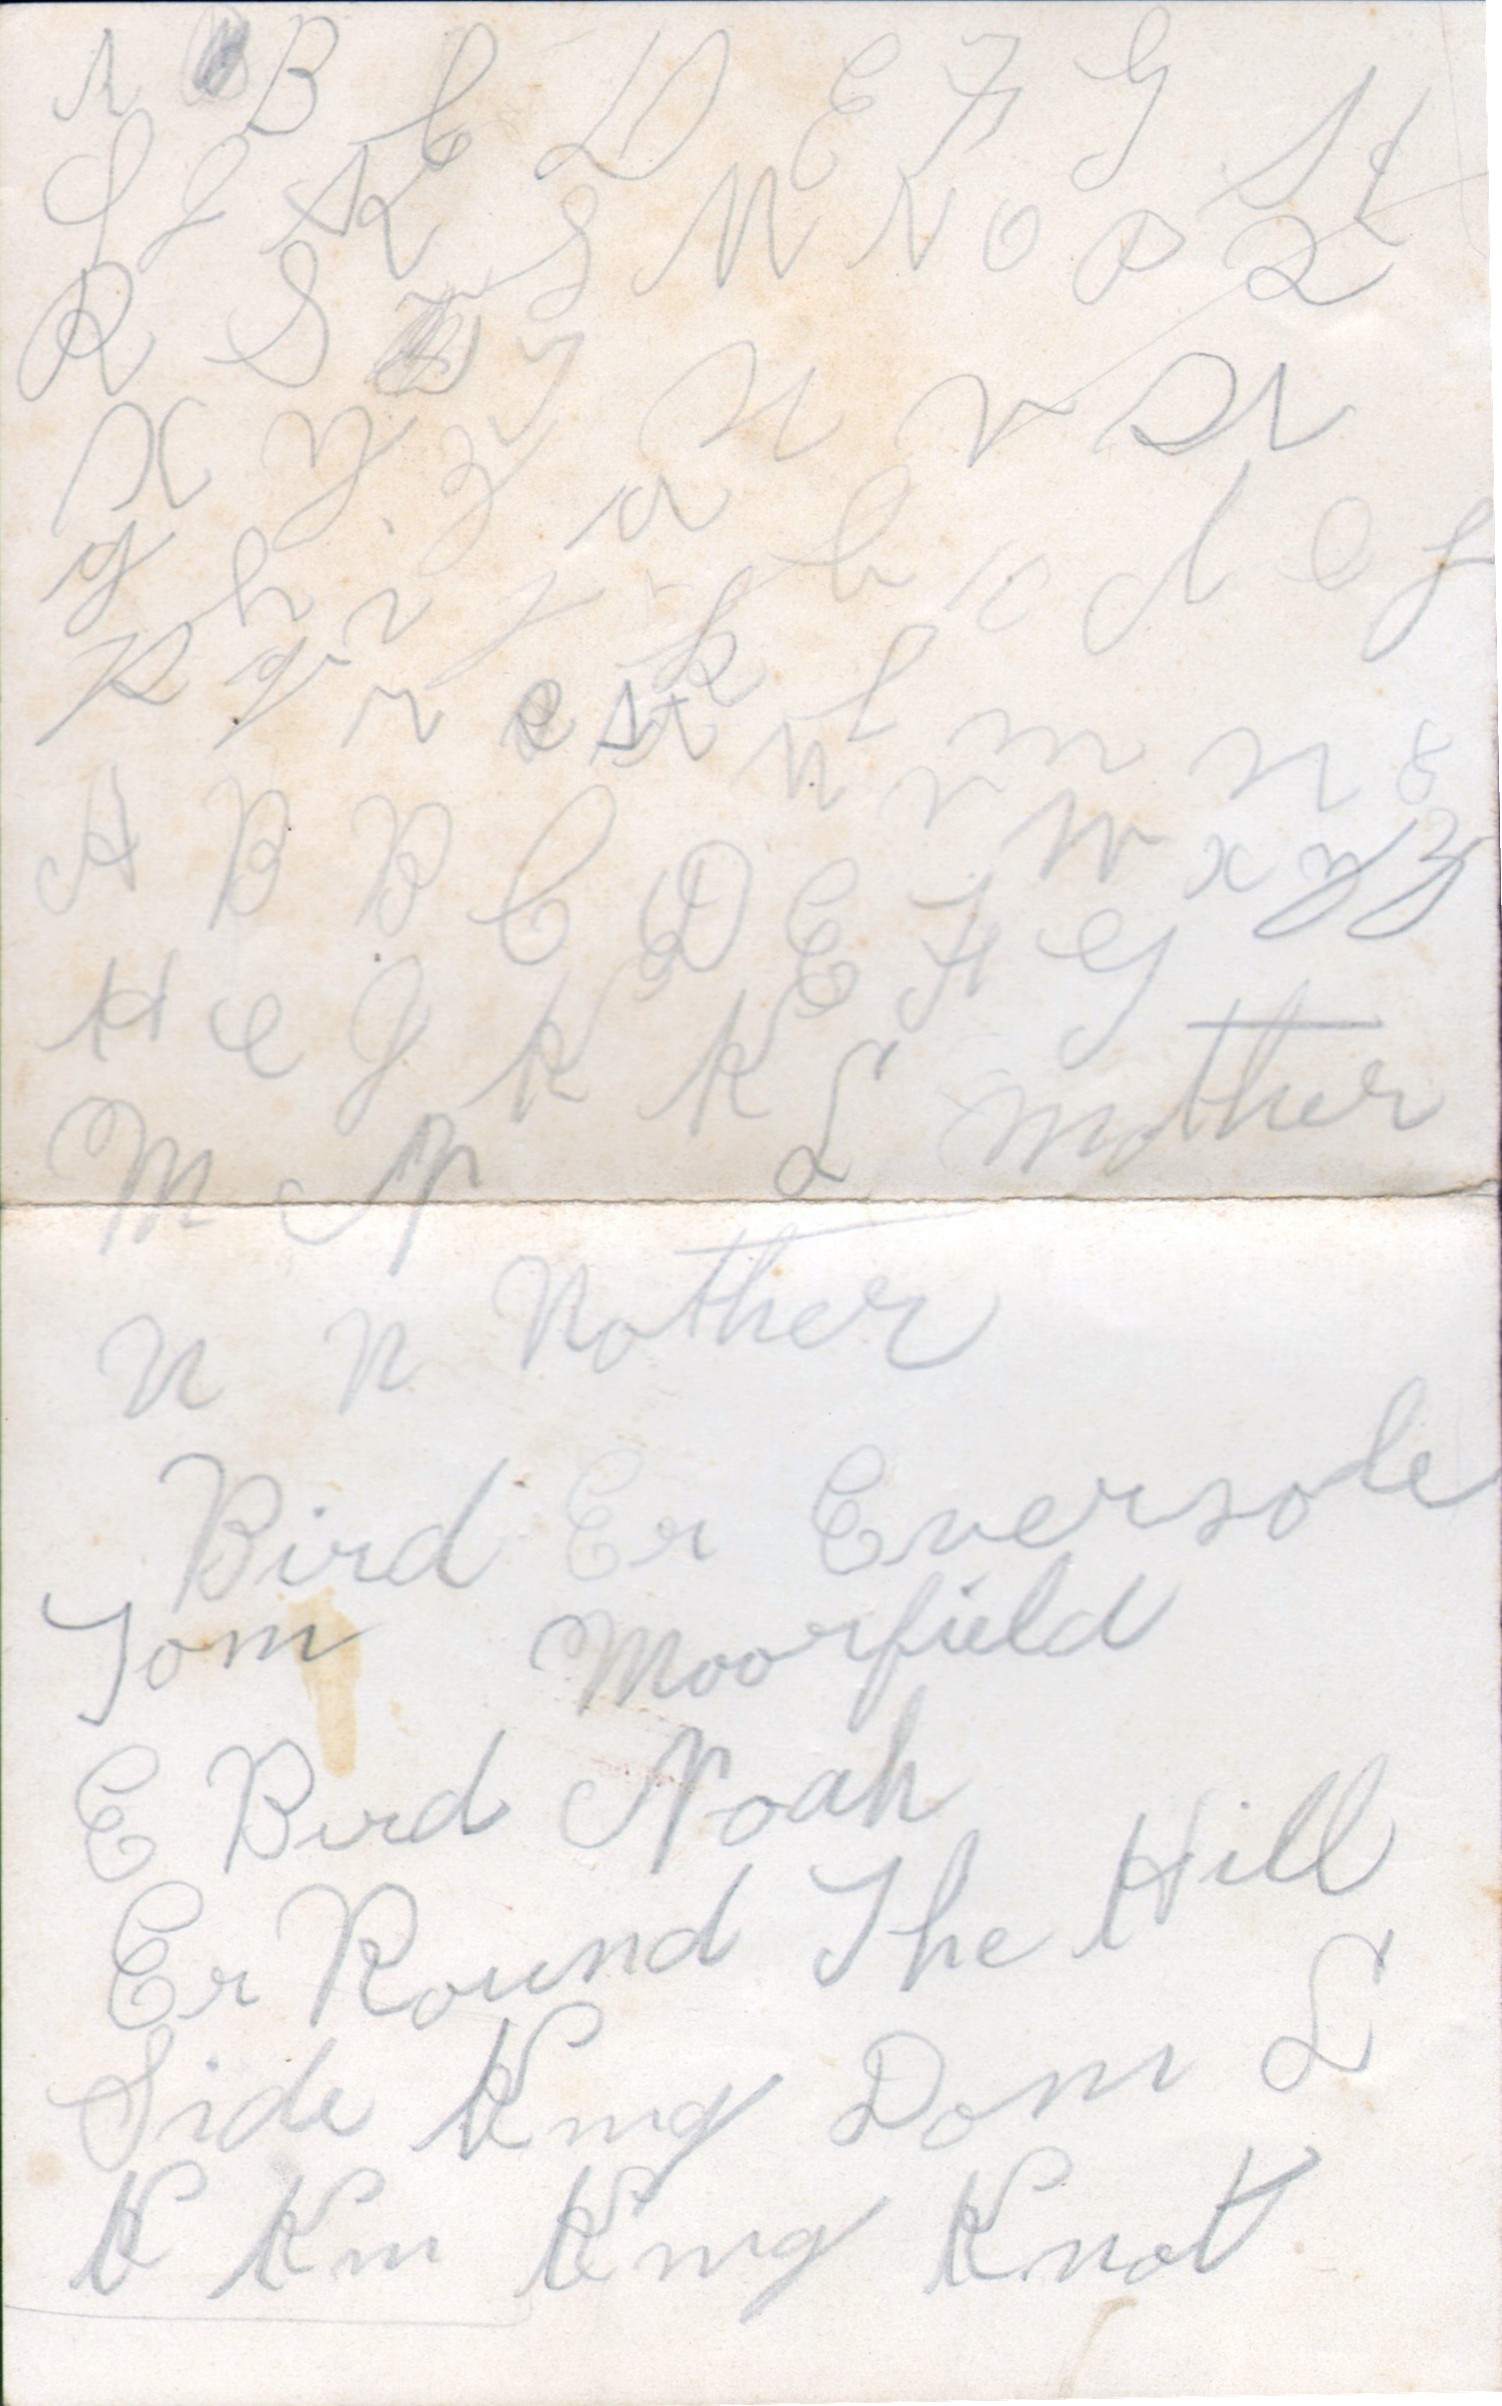 A B B C D E F G H I
I J K L M N O P Q
R S T U V W
X Y Z a b c d e f
g h i j k l m n o
p q r R s t u v w x y z
A B B C D E F G
H I J K K L Mother
M N
N N Nother
Bird Er Eversole
Tom Moorfield
E Bird Noah
Er Round The Hill
Side King Dom L
K Km King Knot